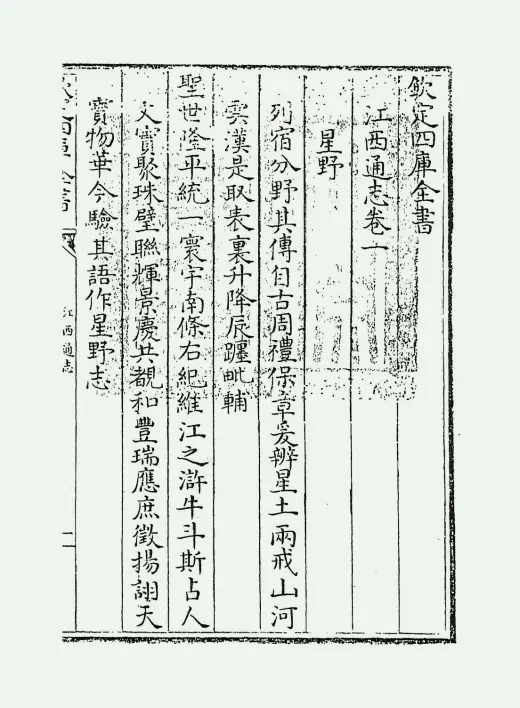 欽定四庫全書
江西通志卷一
星野
列宿分野其傳自古周禮保章爰辨星土兩戒山河
雲漢是取表裏升降辰躔毗輔
聖世隆平統一寰宇南條右紀維江之滸牛斗斯占人
文實聚珠璧聯輝景慶共覩和豐瑞應庶徵揚詡天
寳物華今驗其語作星野志
欽定四庫全書
江西通志